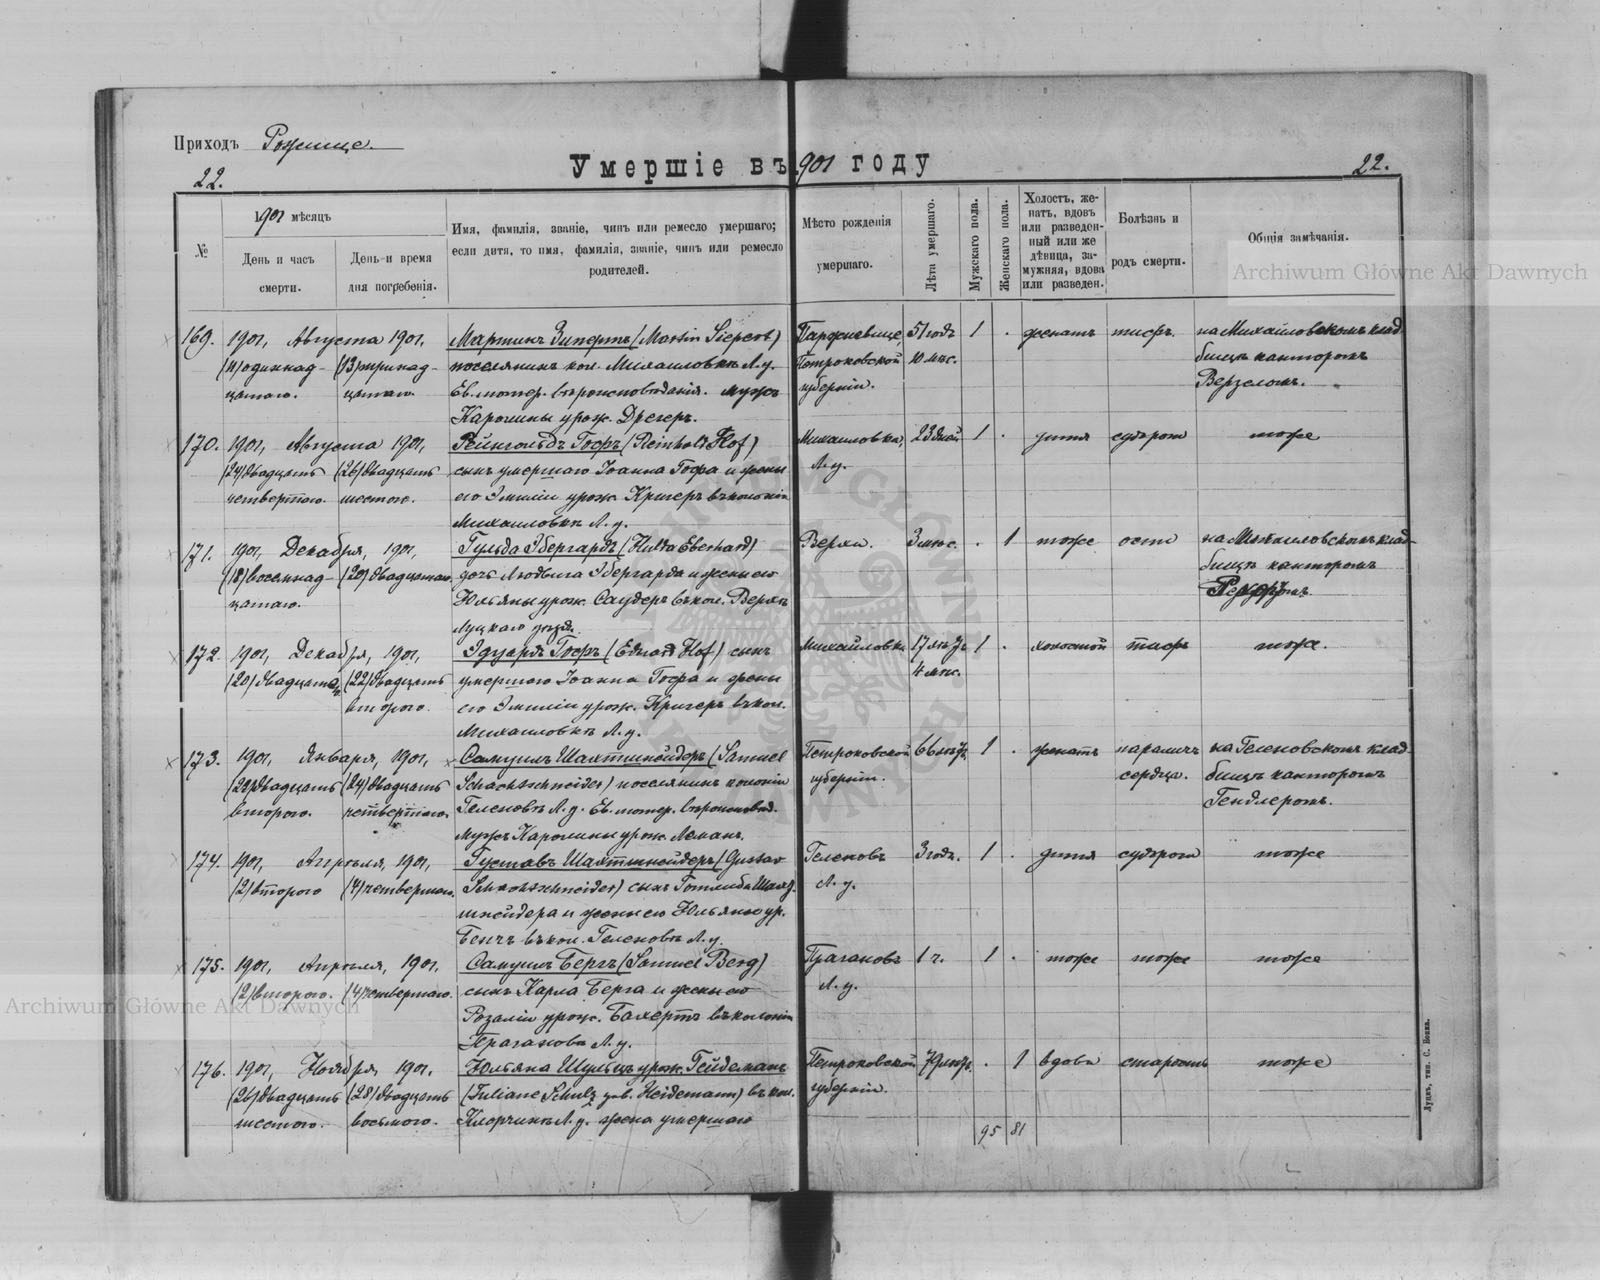 Приходъ Рожище.
Умершіе въ 1901 году
22.
22.
№
1901 мѣсяцъ
День и часъ
смерти.
День и время
дня погребенія.
Имя, фамилія, званіе, чинъ или ремесло умершаго;
если дитя, то имя, фамилія, званіе, чинъ или ремесло
родителей.
Мѣсто рожденія
умершаго.
Лѣта умершаго.
Мужскаго пола.
Женскаго пола.
Холостъ, же-
натъ, вдовъ
или разведен-
ный или же
дѣвица, за-
мужняя, вдова
или разведен.
Болѣзнь и
родъ смерти.
Общія замѣчанія.
Archiwum Główne Akt Dawnych
169. 1901, Августа 1901, Мартинъ Зипертъ (Martin Siepert) 51 годъ 1 . женатъ тифъ. на Михайловскомъ клад-
(11) одиннад- (13) тринад- поселянинъ кол. Михаиловкѣ Л. у. Петроковской 10 мѣс. бищѣ канторомъ
цатаго. цатаго. Ев. лютер. вѣроисповѣданія. мужъ губерніи.
Каролины урож. Дрегеръ.
170. 1901, Августа 1901, Рейнгольдъ Гофъ (Reinhold Hof) Михаиловка, 23 дней 1 . дитя судорог. тоже
(24) двадцать (26) двадцать сынъ умершаго Іоанна Гофа и жены Л. у.
четвертаго. шестого. его Эмиліи урож. Кригеръ въ колоніи
Михаиловкѣ Л. у.
171. 1901, Декабря, 1901, Гульда Эбергардъ (Hulda Eberhard) Верхи. 3 мѣс. . 1 тоже оспа на Михаиловскомъ клад-
(18) восемнад- (20) двадцатаго. дочь Людвига Эбергарда и жены его бищѣ канторомъ
цатаго. Юльяны урож. Саудеръ въ кол. Верхи
Луцкаго уѣзда.
172. 1901, Декабря, 1901, Эдуардъ Гофъ (Eduard Hof) сынъ Михайловка 17 лѣтъ 1 . холостой тифъ тоже.
(20) двадцатаго (22) двадцать умершаго Іоанна Гофа и жены 4 мѣс.
второго. его Эмиліи урож. Кригеръ въ кол.
Михаиловкѣ Л. у.
173. 1901, Января, 1901, Самуилъ Шахтшнейдеръ (Samuel Петроковской 66 лѣтъ 1 . женатъ параличъ на Геленовскомъ клад-
(22) двадцать (24) двадцать Schachtschneider) поселянинъ колоніи губерніи. сердца. бищѣ канторомъ
второго. четвертаго. Геленовъ Л. у. Ев. лютер. вѣроисповѣд. Гендлеромъ.
мужъ Каролины урож. Леманъ.
174. 1901, Апрѣля, 1901, Густавъ Шахтшнейдеръ (Gustav Геленовъ 3 годъ. 1 . дитя судорог. тоже
(2) второго (4) четвертаго. Schachtschneider) сынъ Готлиба Шахт- Л. у.
шнейдера и жены его Юльяны ур.
въ кол. Геленовъ Л. у.
175. 1901, Апрѣля, 1901, Самуилъ Бергъ (Samuel Berg) 1 ч. 1 . тоже тоже тоже
(2) второго. (4) четвертаго. сынъ Карла Берга и жены его Л. у.
Розаліи урож. въ колоніи
Л. у.
176. 1901, Ноября, 1901, Юльяна Шульцъ урож. Гейдеманъ Петроковской 79 лѣтъ. . 1 вдова старость тоже
(26) двадцать (28) двадцать (Juliane Schulz geb. Heidemann) въ кол. губерніи.
шестого. восьмого. Л. у. жена умершаго
95 81
Archiwum Główne Akt Dawnych
Луцкъ, тип. С. Бокка.